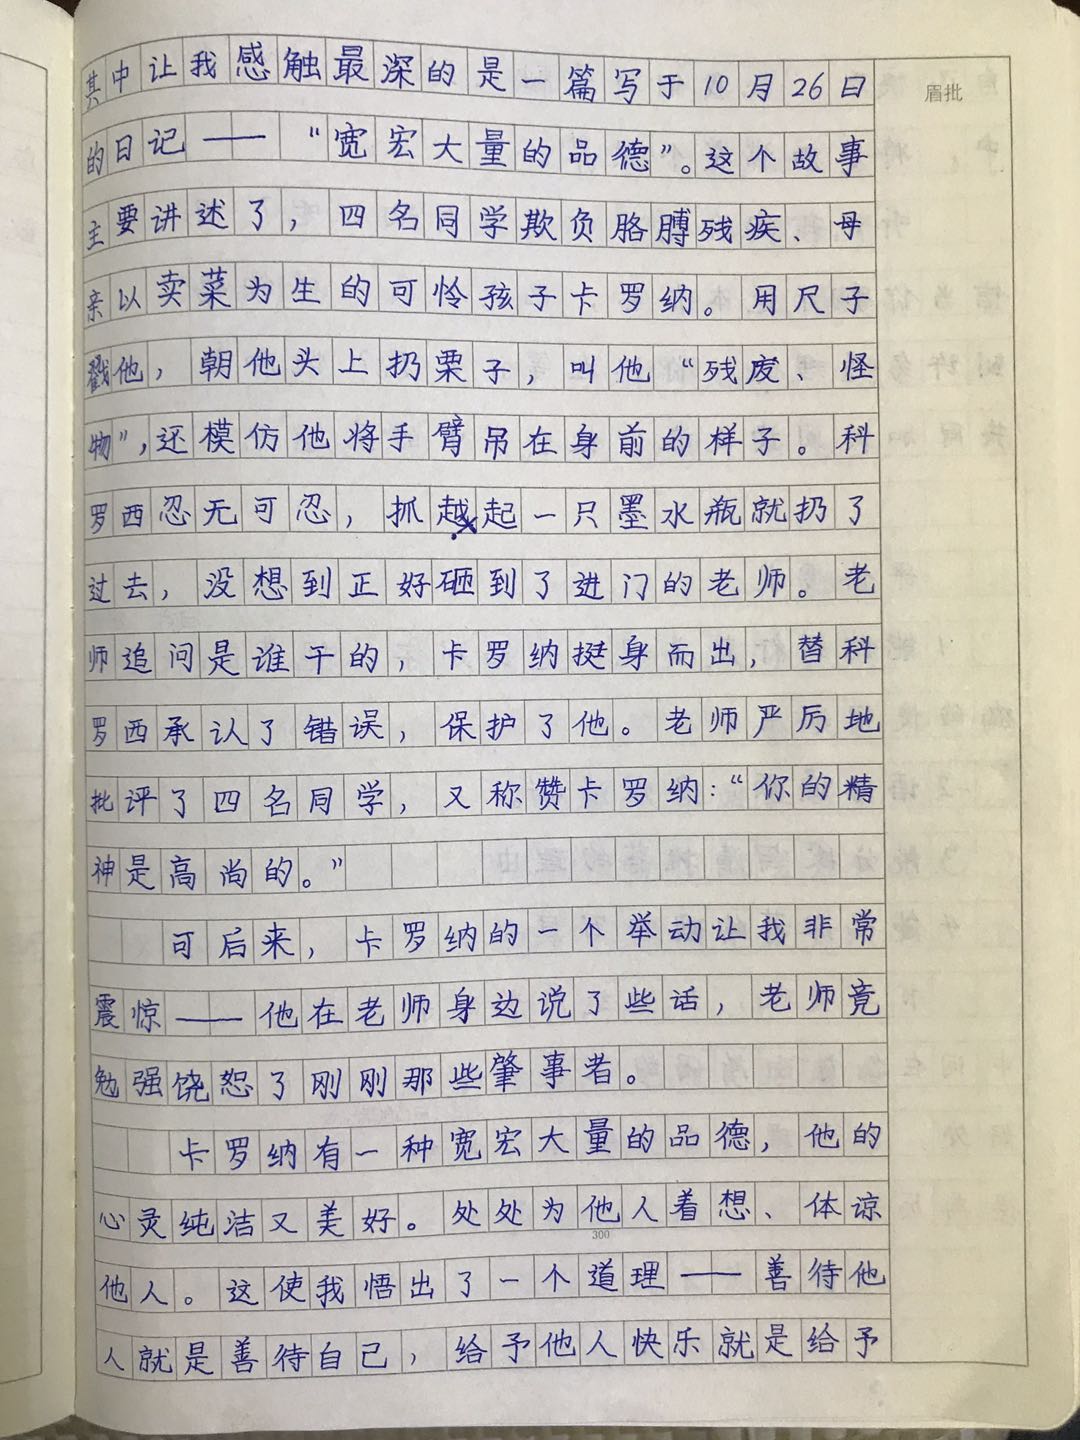 其中让我感触最深的是一篇写于10月26日
眉批
的日记——“宽宏大量的品德”。这个故事
主要讲述了，四名同学欺负胳膊残疾、母
亲以卖菜为生的可怜孩子卡罗纳。用尺子
戳他，朝他头上扔栗子，叫他“残废、怪
物”，还模仿他将手臂吊在身前的样子。科
罗西忍无可忍，抓起一只墨水瓶就扔了
过去，没想到正好砸到了进门的老师。老
师追问是谁干的，卡罗纳挺身而出，替科
罗西承认了错误，保护了他。老师严厉地
批评了四名同学，又称赞卡罗纳：“你的精
神是高尚的。”
可后来，卡罗纳的一个举动让我非常
震惊——他在老师身边说了些话，老师竟
勉强饶恕了刚刚那些肇事者。
卡罗纳有一种宽宏大量的品德，他的
心灵纯洁又美好。处处为他人着想、体谅
300
他人。这使我悟出了一个道理——善待他
人就是善待自己，给予他人快乐就是给予